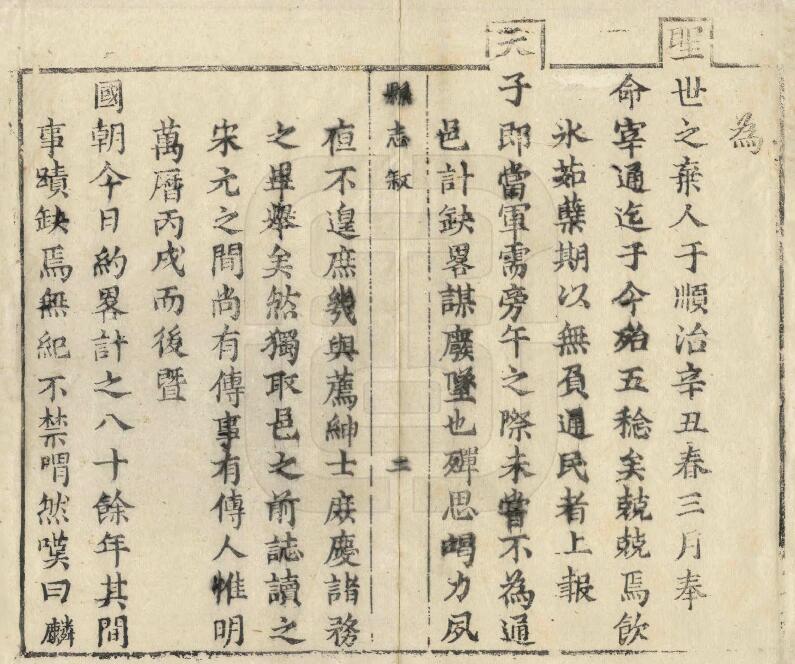 為
聖世之棄人于順治辛丑春三月奉
命宰通迄于今殆五稔矣兢兢焉飲
氷茹櫱期以無負通民者上報
天子即當軍需旁午之際未嘗不為通
邑計缺畧謀廢墜也殫思竭力夙
縣志叙 二
夜不遑庶幾與薦紳士庶慶諸務
之畢舉矣然獨取邑之前誌讀之
宋元之間尚有傳事有傳人惟明
萬曆丙戌而後暨
國朝今日約畧計之八十餘年其間
事蹟缺焉無紀不禁喟然嘆曰麟